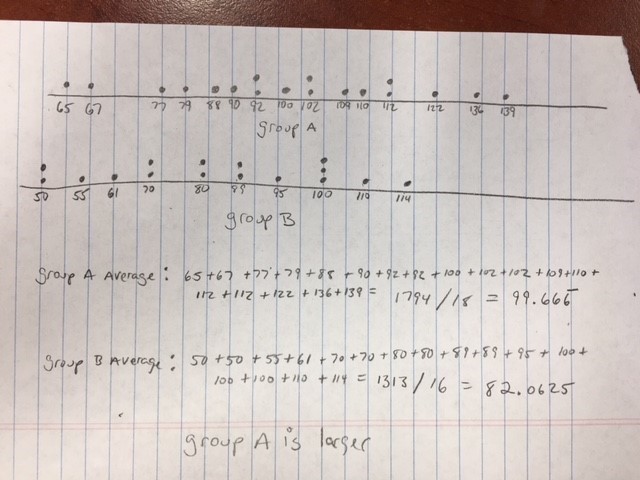 65 67 77 79 88 90 92 100 102 109 110 112 122 136 139
group A
50 55 61 70 80 89 95 100 110 114
group B
group A Average: 65+67+77+79+88+90+92+92+100+102+102+109+110+
112+112+122+136+139= 1794/18 = 99.666̅
group B Average: 50+50+55+61+70+70+80+80+89+89+95+100+
100+100+110+114 = 1313/16 = 82.0625
group A is larger